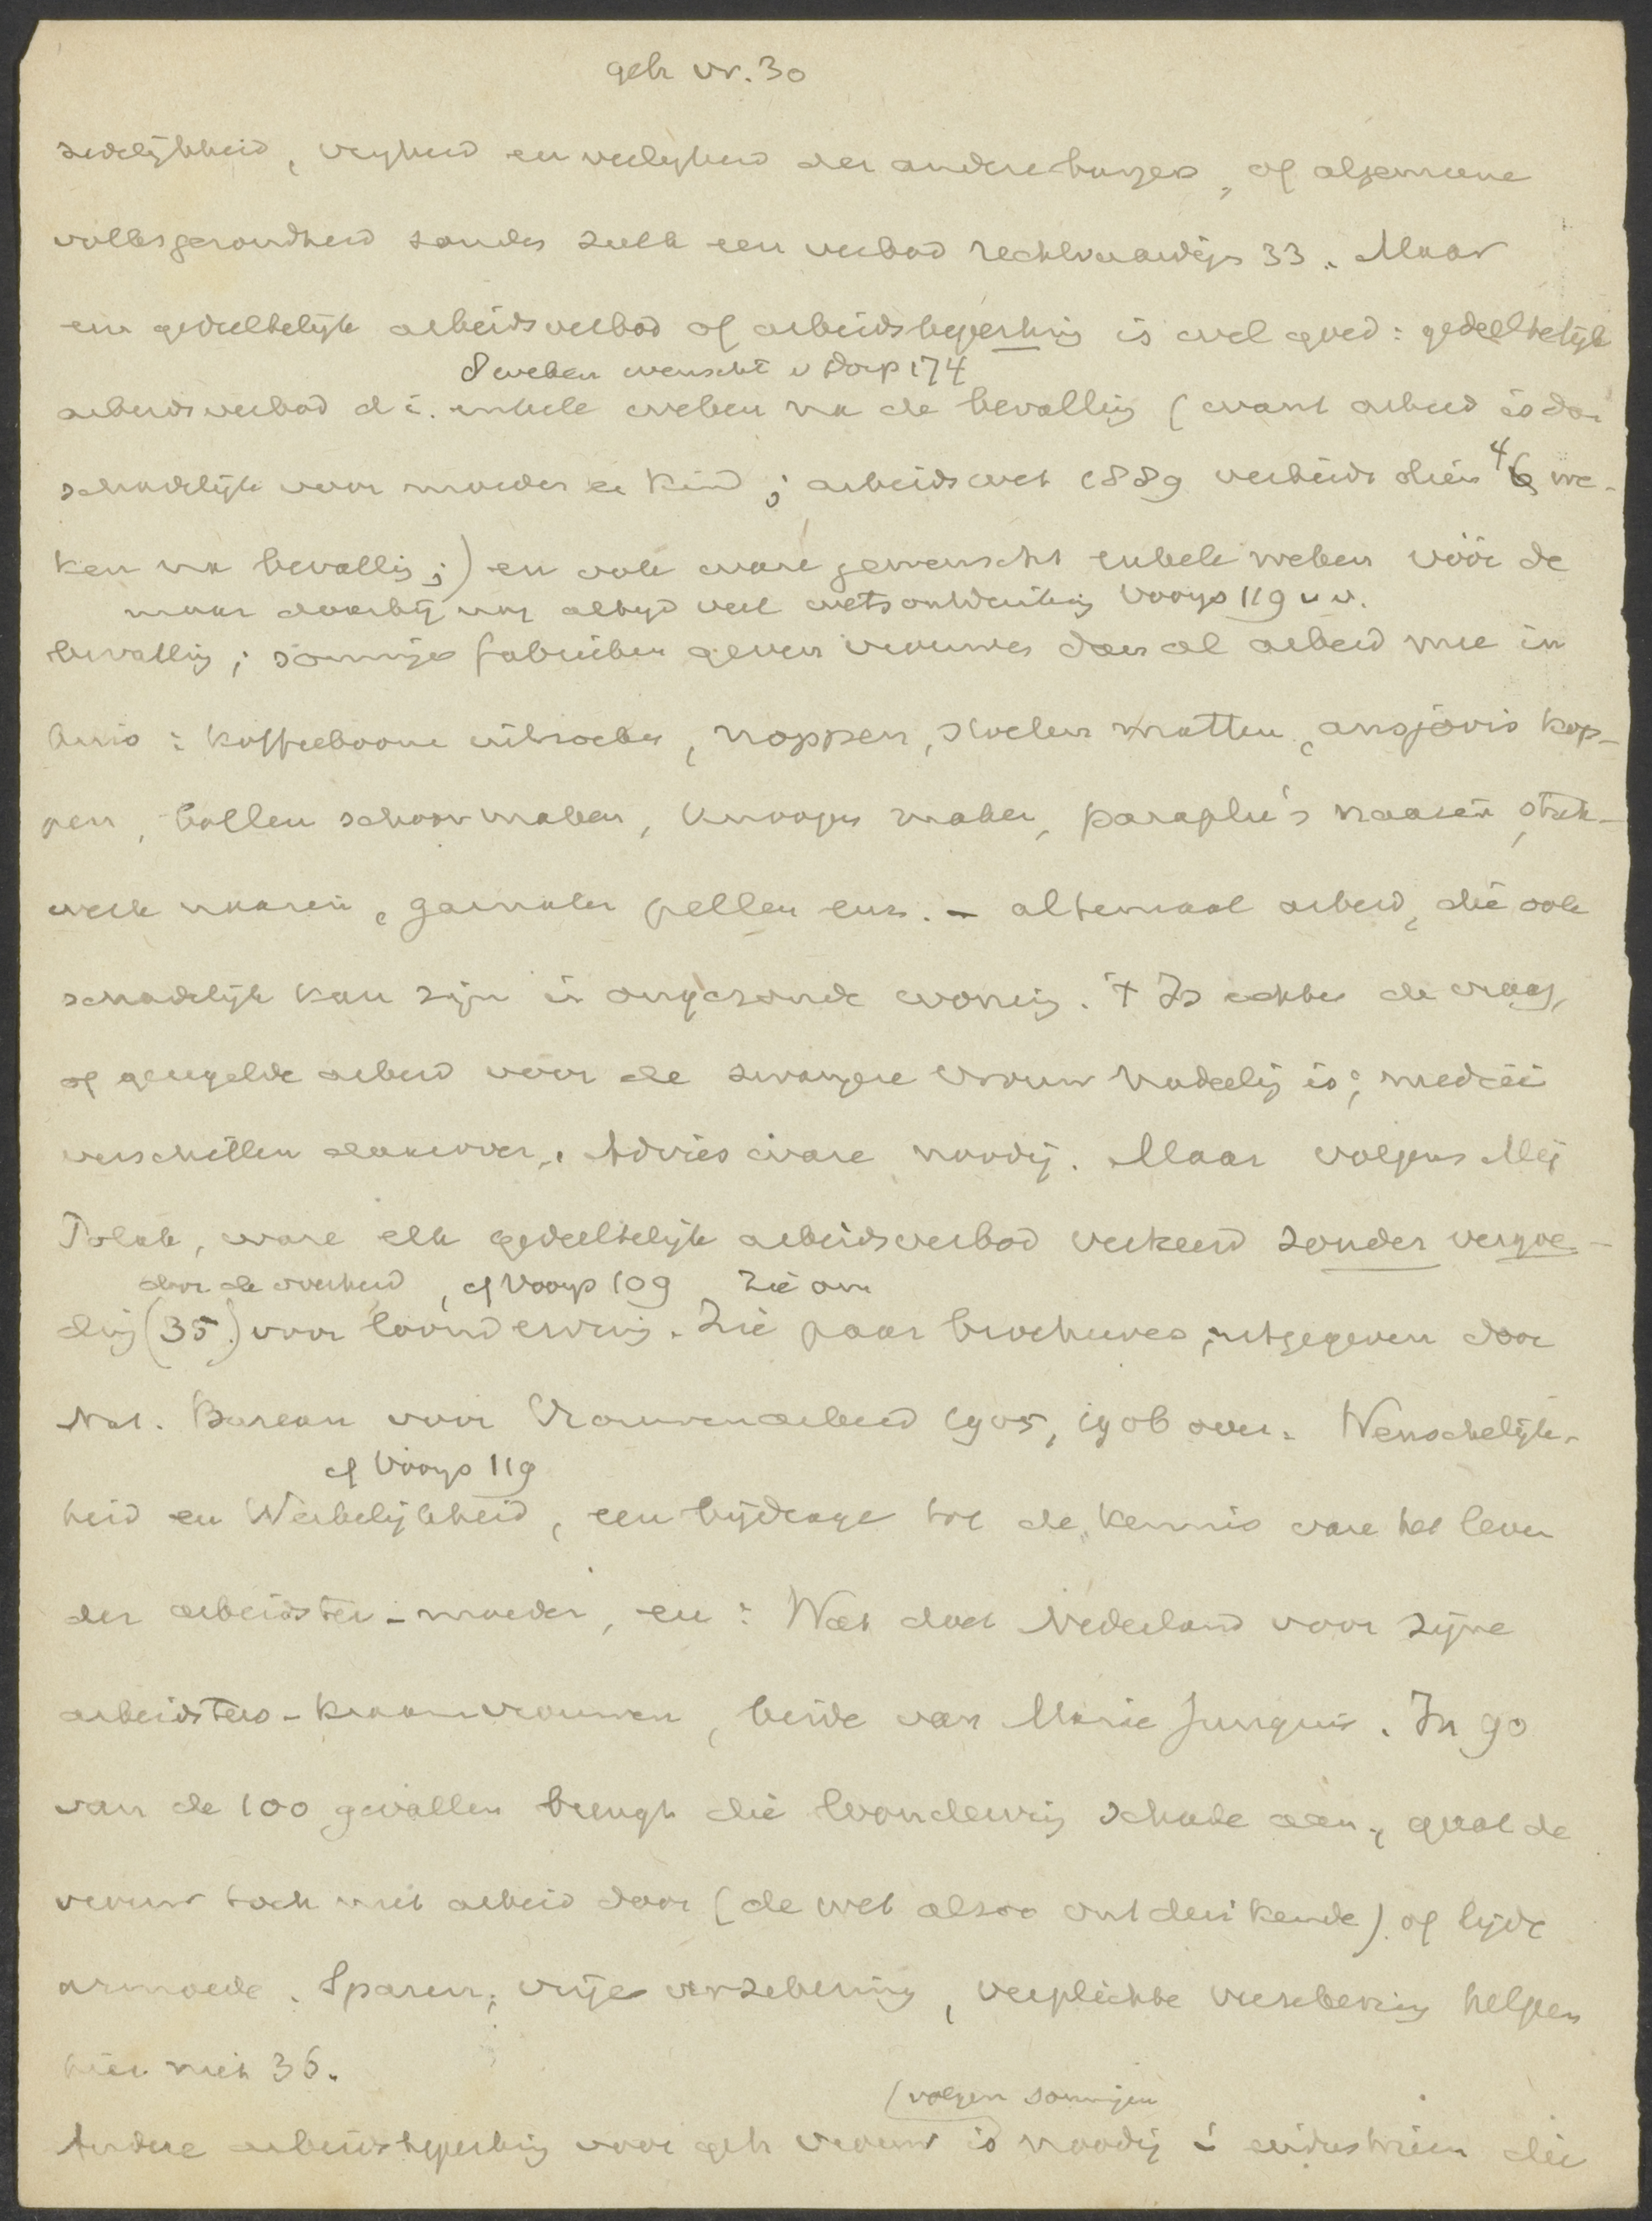 geh vr. 30
zedelijkheid, vrijheid en veiligheid der andere burgers, of algemeene
volksgezondheid zouden zulk een verbod rechtvaardigen 33. Maar
een gedeeltelijk arbeidsverbod of arbeidsbeperking is wel goed: gedeeltelijk
8 weken wenscht v Dorp 174
arbeidsverbod d.i. enkele weken na de bevalling (want arbeid is dan
schadelijk voor moeder en kind; arbeidswet 1889 verbiedt dien 4 we-
ken na bevalling;) en ook ware gewenscht enkele weken vóór de
maar daarbij nog altijd veel wetsontduiking Vooys 119 v v.
bevalling; sommige fabrieken geven vrouwen dan al arbeid mee in
huis: koffieboone uitzoeken, noppen, stoelen matten, ansjovis kop-
pen, bollen schoonmaken, knoopen maken, paraplu's naaien, stuk-
werk naaien, garnalen pellen enz. - altemaal arbeid, die ook
schadelijk kan zijn in ongezonde woning. 't Is echter de vraag,
of geregelde arbeid voor de zwangere vrouw nadeelig is; medici
verschillen daarover. Advies ware noodig. Maar volgens Mej
Polak, ware elk gedeeltelijk arbeidsverbod verkeerd zonder vergoe-
door de overheid, cf Vooys 109 zie ook
ding (35) voor loonderving. Zie paar brochures, uitgegeven door
Nat. Bureau voor Vrouwenarbeid 1905, 1906 over: Wenschelijk-
cf Vooys 119
heid en Werkelijkheid, een bijdrage tot de kennis van het leven
der arbeidster-moeder, en: Wat doet Nederland voor zijne
arbeidsters-kraamvrouwen, beide van Marie Jungius. In 90
van de 100 gevallen brengt die loonderving schade aan, gaat de
vrouw toch met arbeid door (de wet alzoo ontduikende) of lijdt
armoede. Sparen, vrije verzekering, verplichte verzekering helpen
hier niet 36.
(volgens sommigen
Andere arbeidsbeperking voor geh vrouw is noodig in industrieen die